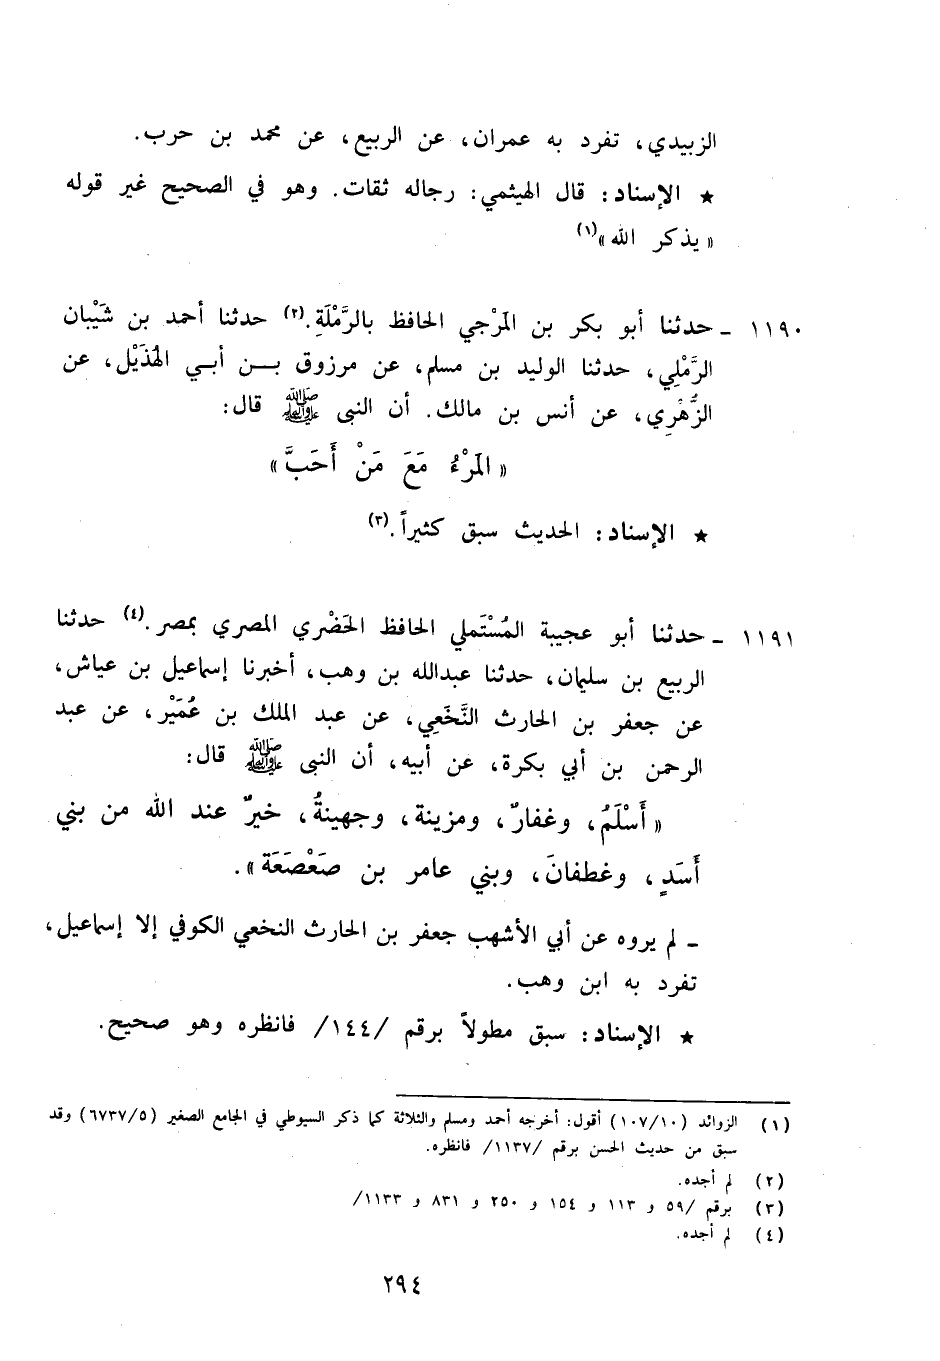 الزبيدي، تفرد به عمران، عن الربيع، عن محمد بن حرب.
★ الإسناد: قال الهيثمي: رجاله ثقات. وهو في الصحيح غير قوله
«يذكر الله»(١)
١١٩٠ ـ حدثنا أبو بكر بن المَرْجي الحافظ بالرَّمْلَةِ.(٢) حدثنا أحمد بن شَيْبان
الرَّمْلِي، حدثنا الوليد بن مسلم، عن مرزوق بـن أبـي الهُذَيْل، عن
الزُّهْرِي، عن أنس بن مالك. أن النبى ﷺ قال:
«المَرْءُ مَعَ مَنْ أَحَبَّ»
★ الإسناد: الحديث سبق كثيراً.(٣)
١١٩١ ـ حدثنا أبو عجيبة المُسْتَملي الحافظ الحَضْري المصري بمصر.(٤) حدثنا
الربيع بن سليمان، حدثنا عبدالله بن وهب، أخبرنا إسماعيل بن عياش،
عن جعفر بن الحارث النَّخَعِي، عن عبد الملك بن عُمَيْر، عن عبد
الرحمن بن أبي بكرة، عن أبيه، أن النبى ﷺ قال:
«أَسْلَمُ، وغفارٌ، ومزينة، وجهينةُ، خيرٌ عند الله من بني
أَسَدٍ، وغطفانَ، وبني عامر بن صَعْصَعَة».
ـ لم يروه عن أبي الأشهب جعفر بن الحارث النخعي الكوفي إلا إسماعيل،
تفرد به ابن وهب.
★ الإسناد: سبق مطولاً برقم /١٤٤/ فانظره وهو صحيح.
(١) الزوائد (١٠/١٠٧) أقول: أخرجه أحمد ومسلم والثلاثة كما ذكر السيوطي في الجامع الصغير (٦٧٣٧/٥) وقد
سبق من حديث الحسن برقم /١١٣٧/ فانظره.
(٢) لم أجده.
(٣) برقم /٥٩ و ١١٣ و ١٥٤ و ٢٥٠ و ٨٣١ و ١١٣٣/
(٤) لم أجده.
٢٩٤